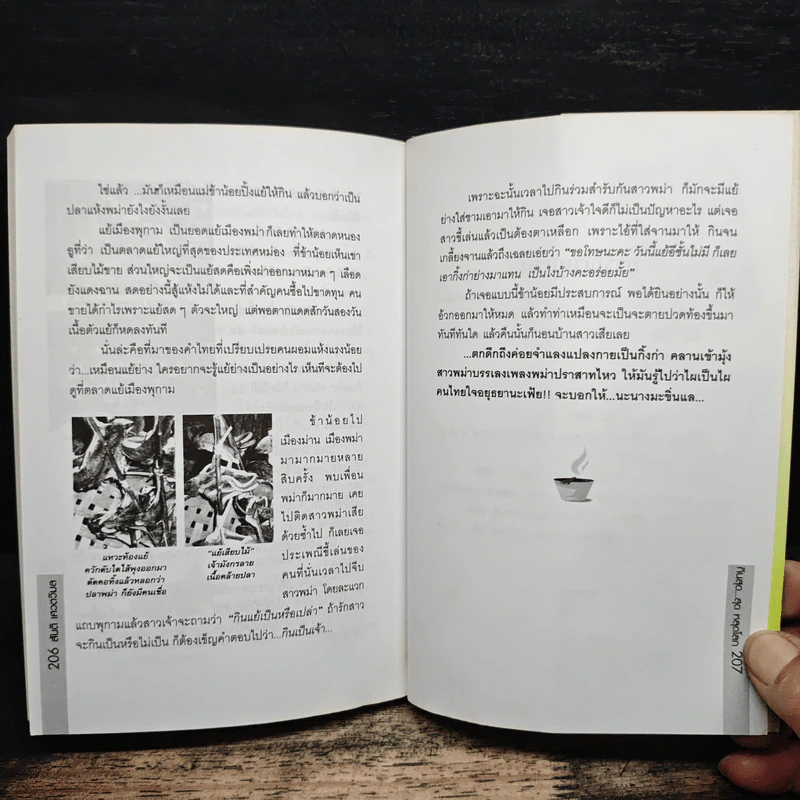 ใช่แล้ว ...มันก็เหมือนแม่ข้าน้อยปิ้งแย้ให้กิน แล้วบอกว่าเป็น
ปลาแห้งพม่ายังไงยังงั้นเลย
แย้เมืองพุกาม เป็นยอดแย้เมืองพม่า ก็เลยทำให้ตลาดหนอง
อูที่ว่า เป็นตลาดแย้ใหญ่ที่สุดของประเทศหม่อง ที่ข้าน้อยเห็นเขา
เสียบไม้ขาย ส่วนใหญ่จะเป็นแย้สดคือเพิ่งผ่าออกมาหมาด ๆ เลือด
ยังแดงฉาน สดอย่างนี้สู้แห้งไม่ได้และที่สำคัญคนซื้อไปขาดทุน คน
ขายได้กำไรเพราะแย้สด ๆ ตัวจะใหญ่ แต่พอตากแดดสักวันสองวัน
เนื้อตัวแย้ก็หดลงทันที
นั่นล่ะคือที่มาของคำไทยที่เปรียบเปรยคนผอมแห้งแรงน้อย
ว่า...เหมือนแย้ย่าง ใครอยากจะรู้แย้ย่างเป็นอย่างไร เห็นทีจะต้องไป
ดูที่ตลาดแย้เมืองพุกาม
ข้าน้อยไป
เมืองม่าน เมืองพม่า
มามากมายหลาย
สิบครั้ง พบเพื่อน
พม่าก็มากมาย เคย
ไปติดสาวพม่าเสีย
ด้วยซ้ำไป ก็เลยเจอ
ประเพณีขี้เล่นของ
คนที่นั่นเวลาไปจีบ
สาวพม่า โดยละแวก
แถบพุกามแล้วสาวเจ้าจะถามว่า "กินแย้เป็นหรือเปล่า" ถ้ารักสาว
จะกินเป็นหรือไม่เป็น ก็ต้องเซ็ญคำตอบไปว่า...กินเป็นเจ้า...
แหวะท้องแย้
ควักตับไตไส้พุงออกมา
ตัดคอทิ้งแล้วหลอกว่า
ปลาพม่า ก็ยังมีคนเชื่อ
"แย้เสียบไม้"
เจ้ามังกรลาย
เนื้อคล้ายปลา
206 สันติ เศวตวิมล
เพราะฉะนั้นเวลาไปกินร่วมสำรับกับสาวพม่า ก็มักจะมีแย้
ย่างใส่ชามเอามาให้กิน เจอสาวเจ้าใจดีก็ไม่เป็นปัญหาอะไร แต่เจอ
สาวขี้เล่นแล้วเป็นต้องตาเหลือก เพราะไอ้ที่ใส่จานมาให้ กินจน
เกลี้ยงจานแล้วถึงเฉลยเอ่ยว่า "ขอโทษนะคะ วันนี้แย้อีชั้นไม่มี ก็เลย
เอากิ้งก่าย่างมาแทน เป็นไงบ้างคะอร่อยมั้ย"
ถ้าเจอแบบนี้ข้าน้อยมีประสบการณ์ พอได้ยินอย่างนั้น ก็ให้
อ้วกออกมาให้หมด แล้วทำท่าเหมือนจะเป็นจะตายปวดท้องขึ้นมา
ทันทีทันใด แล้วคืนนั้นก็นอนบ้านสาวเสียเลย
...ตกดึกถึงค่อยจำแลงแปลงกายเป็นกิ้งก่า คลานเข้ามุ้ง
สาวพม่าบรรเลงเพลงพม่าปราสาทไหว ให้มันรู้ไปว่าไผเป็นไผ
คนไทยใจอยุธยานะเฟ้ย!! จะบอกให้...นะนางมะขิ่นแล...
กินสุด...สุด หลุดโลก 207